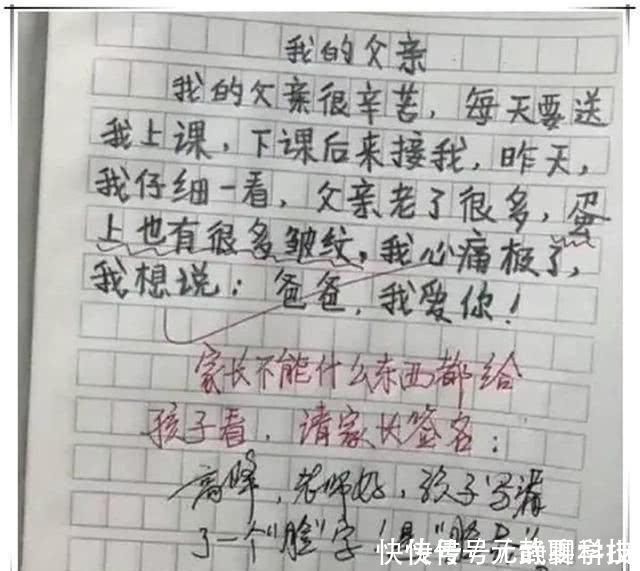 我的父亲
我的父亲很辛苦，每天要送
我上课，下课后来接我，昨天，
我仔细一看，父亲老了很多，蛋
上也有很多皱纹，我心痛极了，
我想说：爸爸，我爱你！
家长不能什么东西都给
孩子看，请家长签名：
高峰，老师好，孩子写漏
了一个"脸"字！是"脸蛋"
快快传号